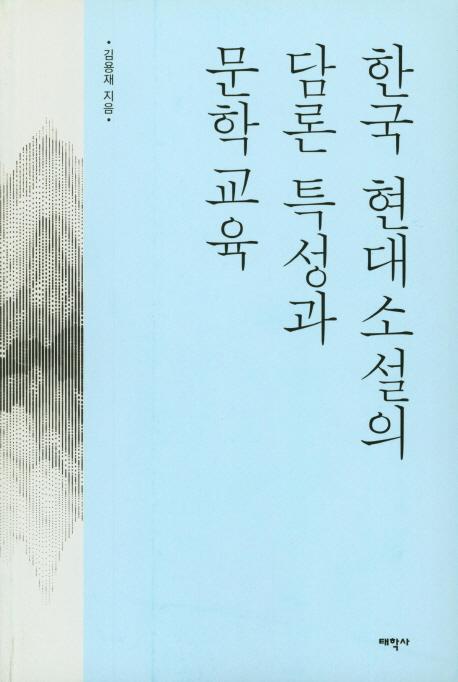 한국 현대소설의
담론 특성과
문학 교육
•김용재 지음•
태학사